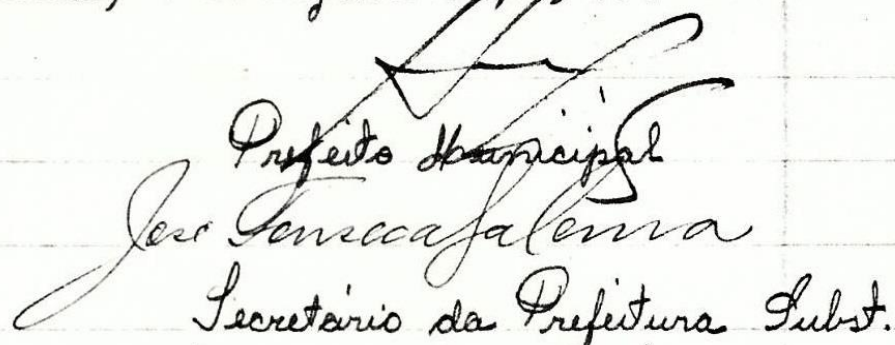 Prefeito Municipal
José Fonseca Salema
Secretário da Prefeitura Subst.